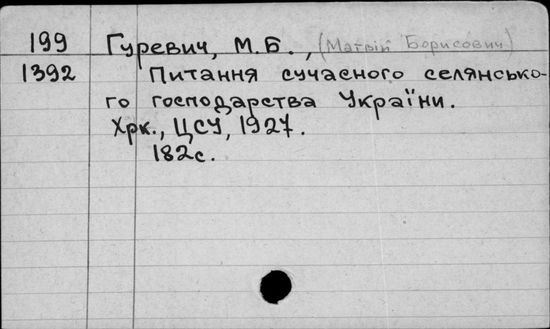 199 Гуревич, М.Б., (Матвій Борисович)
1392 Питання сучасного селянсько-
го господарства України.
Хрк., ЦСУ, 1927.
182с.